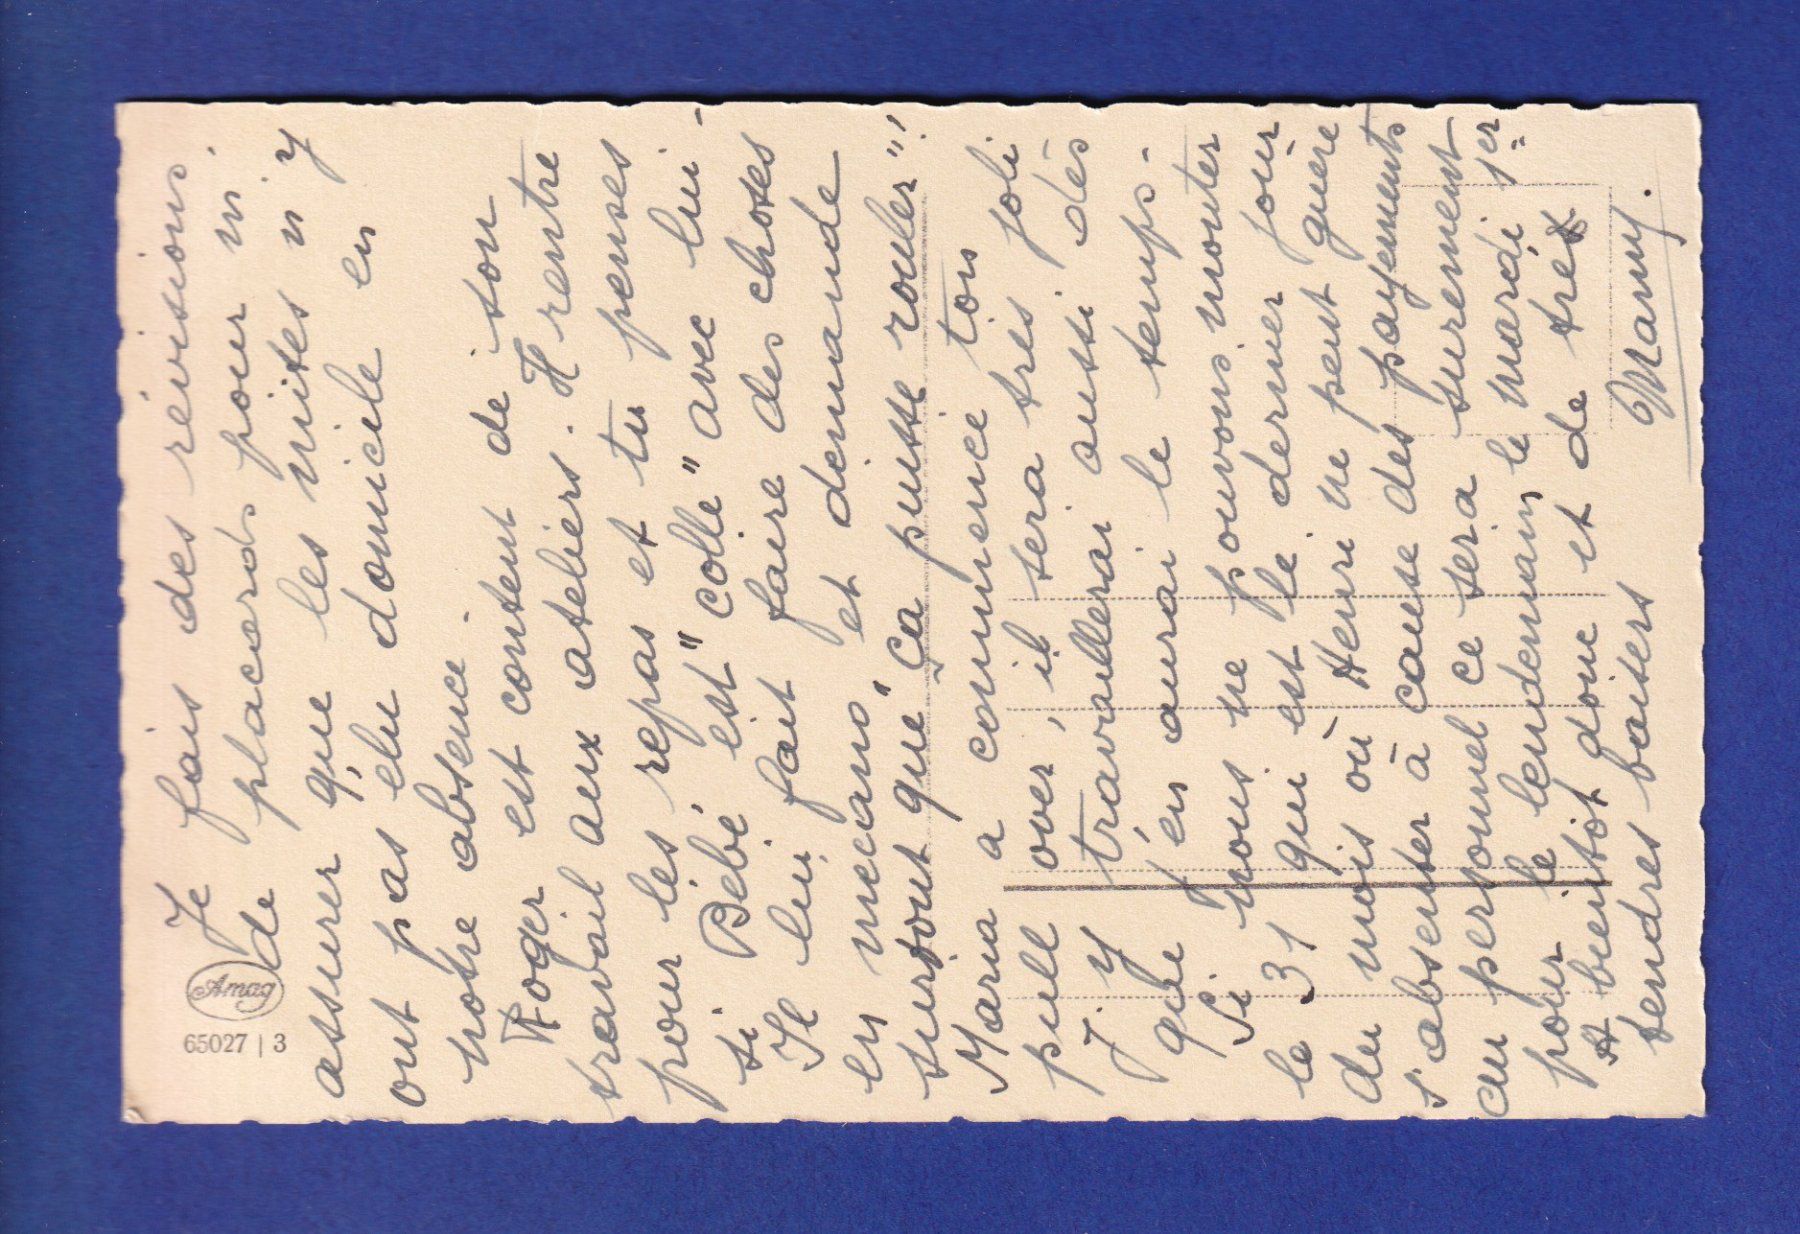 Je fais des révisions
de placards pour m'
assurer que les mites n'y
ont pas élu domicile en
notre absence.
Roger est content de son
travail aux ateliers. Il rentre
pour les repas et tu penses
si Bébé est "collé" avec lui -
Il lui fait faire des choses
en mecano et demande
surtout que "ça puisse rouler"!
Maria a commencé ton joli
pull over, il sera très
J'y travaillerai aussi dès
que j'en aurai le temps -
Si nous ne pouvons monter
le 31 qui est le dernier jour
du mois où Henri ne peut guère
s'absenter à cause des payements
au personnel ce sera surement
pour le lendemain le mardi 1er
A bientôt donc et de très
tendres baisers Mamy.
Amag
65027 | 3